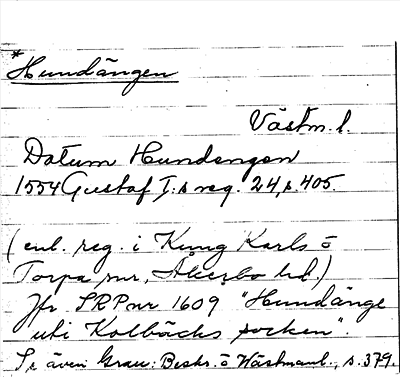 * Hundängen
Västm. l.
Datum Hundengen
1554 Gustaf I:s reg. 24, s. 405.
(enl. reg. i Kung Karls ö
Torpa snr, Åkerbo hd.)
Jfr SRP nr 1609 "Hundänge
uti Kolbäcks socken".
Se även Grau: Beskr. ö Wästmanl., s. 379.